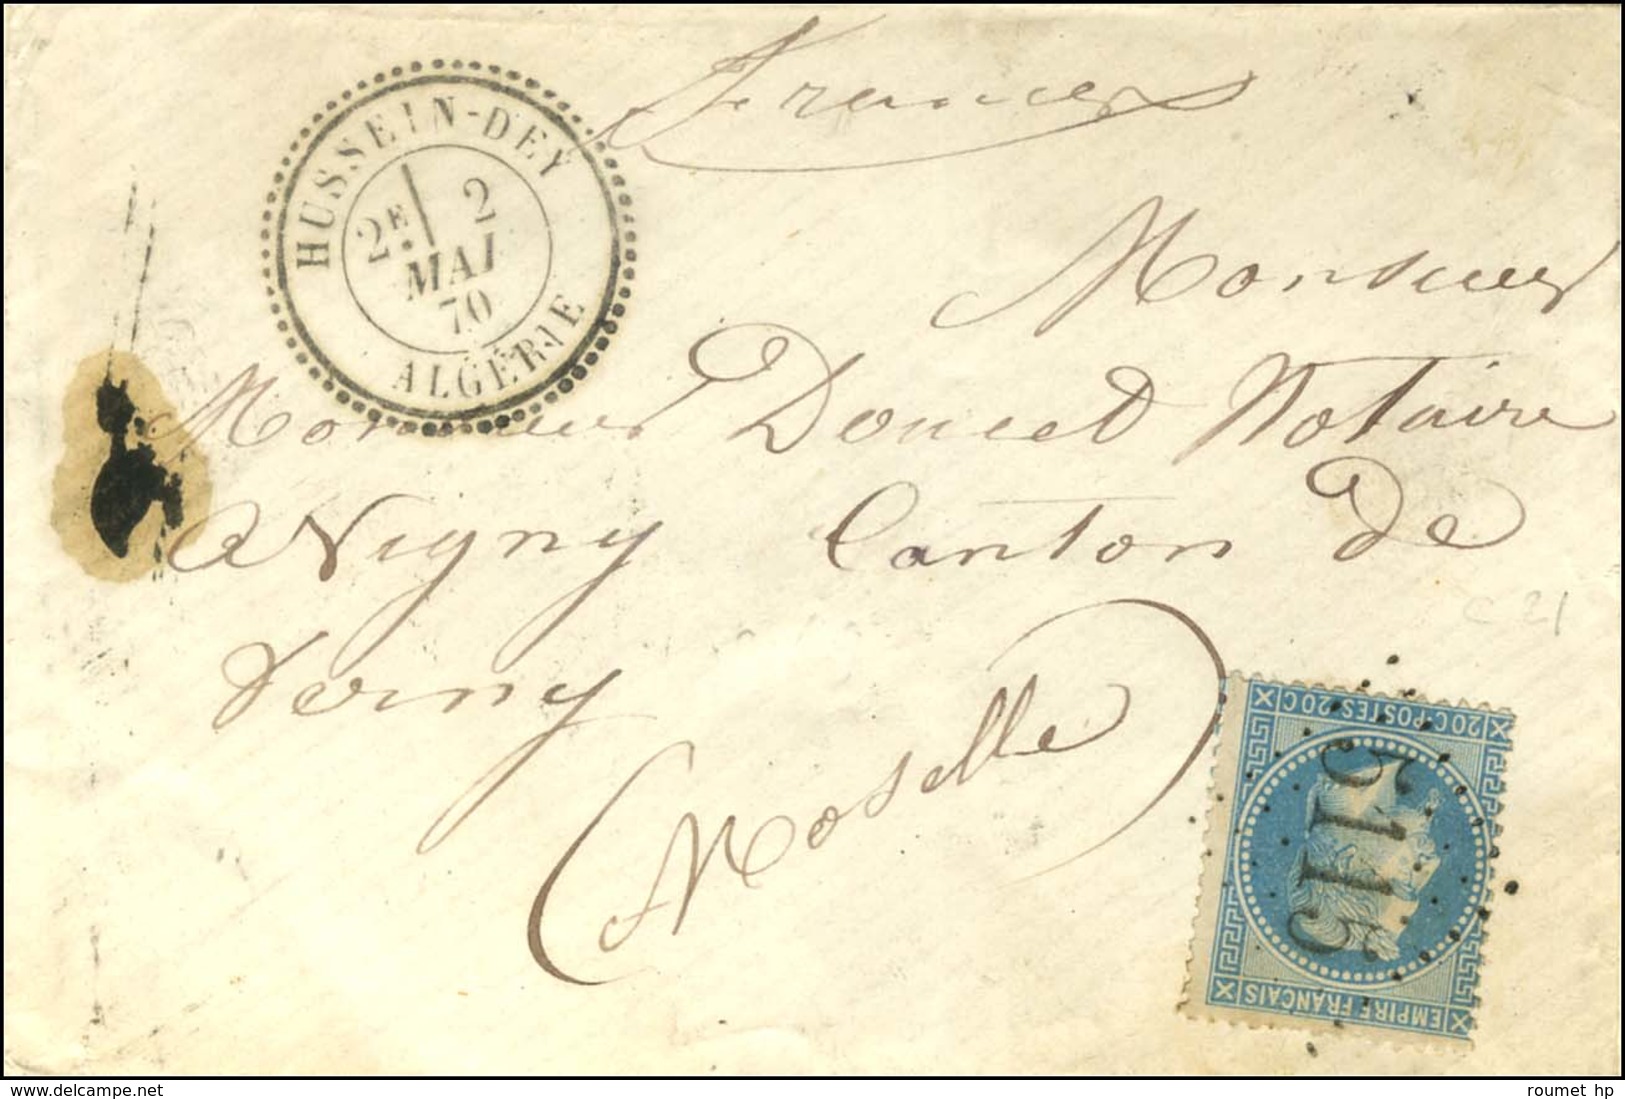 France
HUSSEIN-DEY
2E 2
MAI
70
ALGÉRIE
Monsieur
Monsieur Doucet Notaire
a Vigny Canton de
Verny
(Moselle)
C 21
20C POSTES 20C
5115
EMPIRE FRANÇAIS
www.delcampe.net
roumet hp